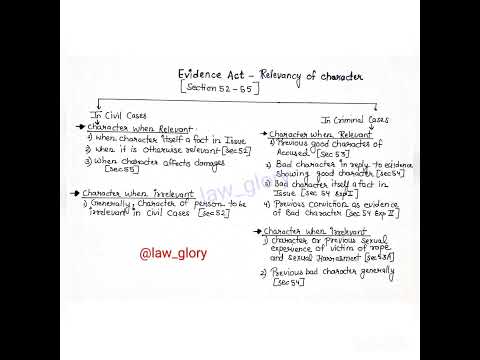 Evidence Act - Relevancy of character
[Section 52 - 55]
In Civil Cases
→ Character when Relevant
1) when character itself a fact in Issue
2) when it is otherwise relevant [Sec 52]
3) when character affects damages
[Sec 55]
→ Character when irrelevant
1) Generally, Character of person to be
irrelevant in Civil Cases [Sec 52]
In Criminal
Cases
→ Character when Relevant
1) Previous good character of
Accused [Sec 53]
2) Bad character in reply to evidence
showing good character [sec 54]
3) Bad character itself a fact in
Issue [sec 54 Exp I]
4) Previous conviction as evidence
of Bad Character [Sec 54 Exp II]
→ Character when irrelevant
1) character or Previous sexual
experience of victim of rape
and sexual Harrasment [sec 53A]
2) Previous bad character generally
[sec 54]
law_glory
@law_glory